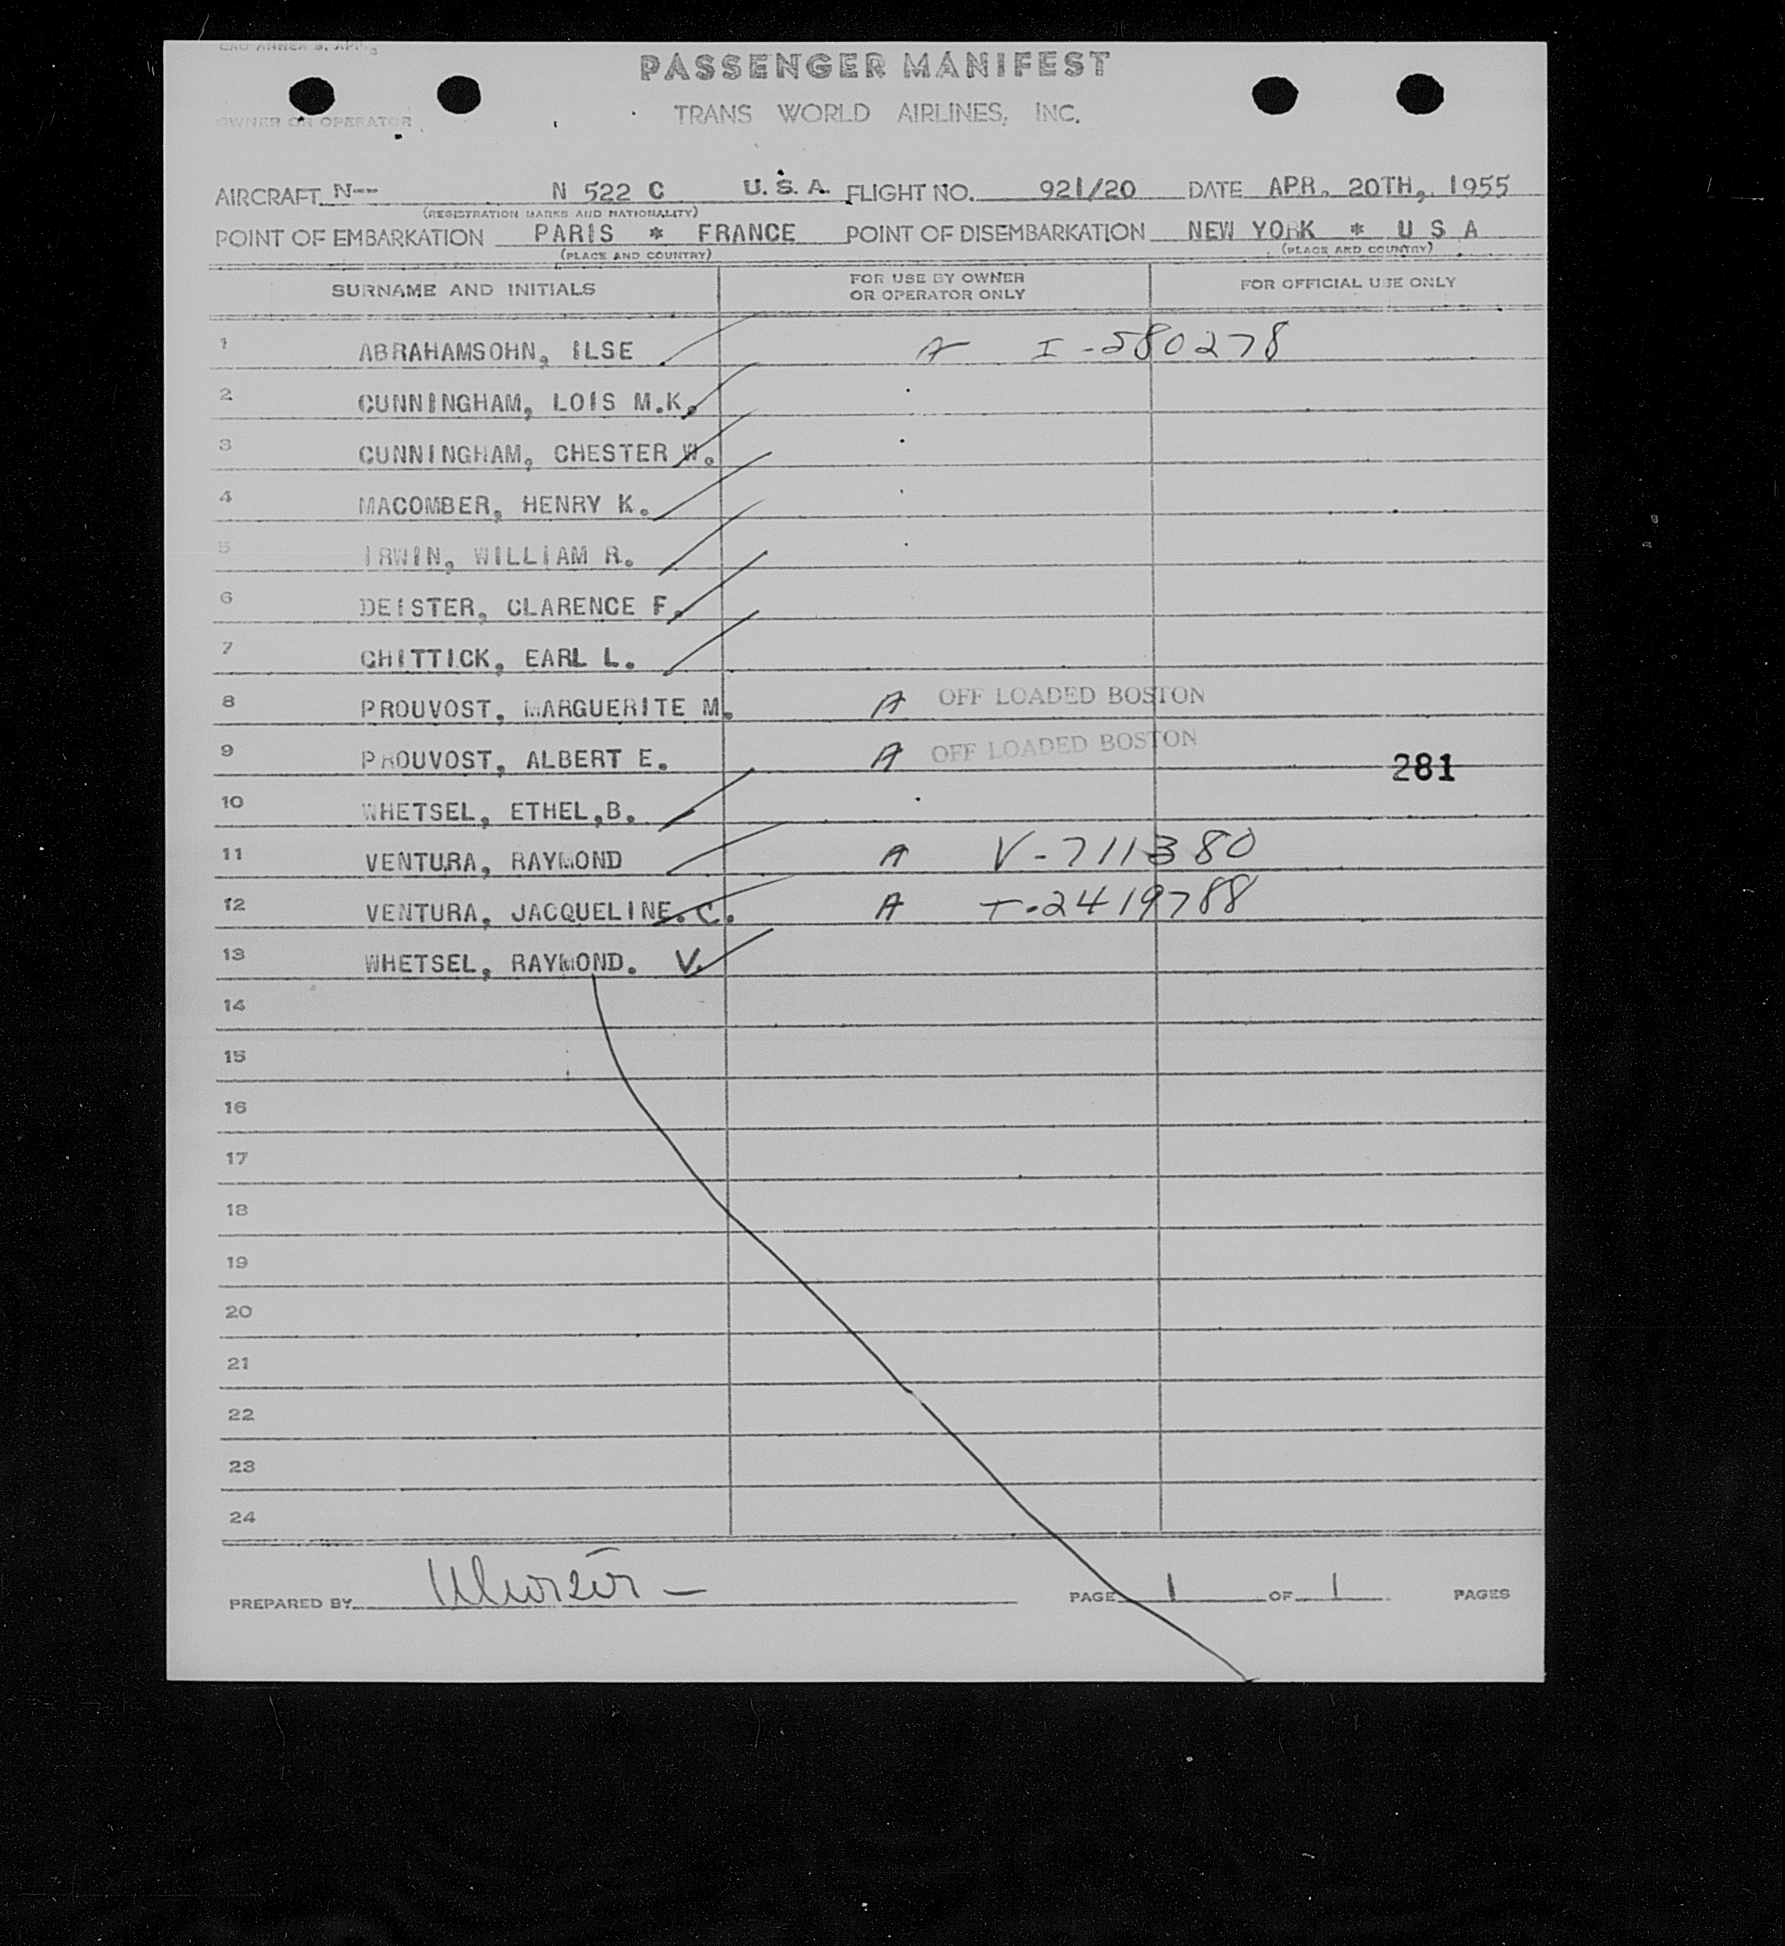 PASSENGER MANIFEST
OWNER OR OPERATOR
TRANS WORLD AIRLINES, INC.
AIRCRAFT N-- N 522 C U.S.A. FLIGHT NO. 921/20 DATE APR. 20TH, 1955
(REGISTRATION MARKS AND NATIONALITY)
POINT OF EMBARKATION PARIS * FRANCE POINT OF DISEMBARKATION NEW YORK * U S A
(PLACE AND COUNTRY) (PLACE AND COUNTRY)
SURNAME AND INITIALS FOR USE BY OWNER OR OPERATOR ONLY FOR OFFICIAL USE ONLY
1 ABRAHAMSOHN, ILSE A I-580278
2 CUNNINGHAM, LOIS M.K.
3 CUNNINGHAM, CHESTER W.
4 MACOMBER, HENRY K.
5 IRWIN, WILLIAM R.
6 DEISTER, CLARENCE F.
7 CHITTICK, EARL L.
8 PROUVOST, MARGUERITE M. A OFF LOADED BOSTON
9 PROUVOST, ALBERT E. A OFF LOADED BOSTON
281
10 WHETSEL, ETHEL,B.
11 VENTURA, RAYMOND A V-711380
12 VENTURA, JACQUELINE. C. A T-2419788
13 WHETSEL, RAYMOND. V.
14
15
16
17
18
19
20
21
22
23
24
PREPARED BY PAGE 1 OF 1 PAGES